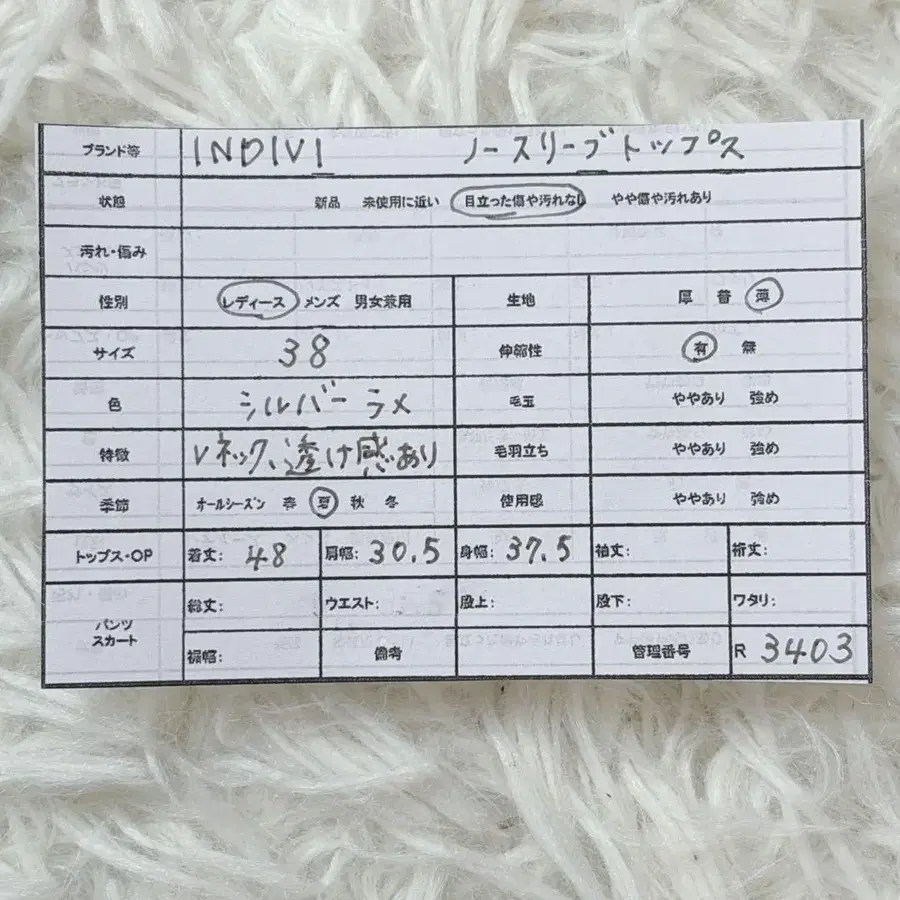 ブランド等 INDIVI ノースリーブトップス
状態 新品 未使用に近い 目立った傷や汚れなし やや傷や汚れあり
汚れ・傷み
性別 レディース メンズ 男女兼用 生地 厚 普 薄
サイズ 38 伸縮性 有 無
色 シルバーラメ 毛玉 ややあり 強め
特徴 Vネック、透け感あり 毛羽立ち ややあり 強め
季節 オールシーズン 春 夏 秋 冬 使用感 ややあり 強め
トップス・OP 着丈: 48 肩幅: 30.5 身幅: 37.5 袖丈: 裄丈:
パンツ
スカート
総丈: ウエスト: 股上: 股下: ワタリ:
裾幅: 備考 管理番号 R 3403